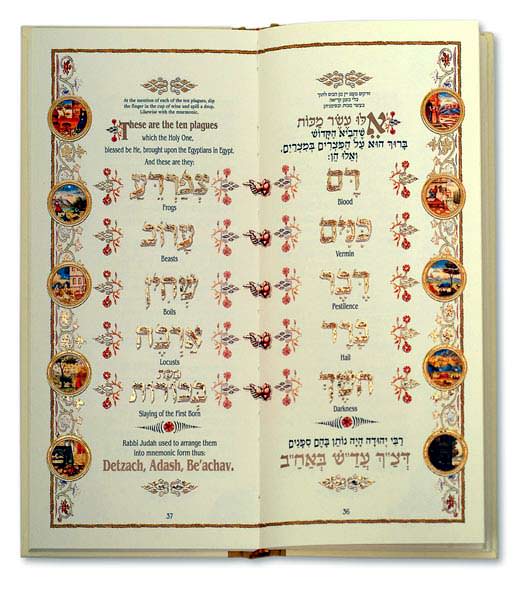 מעט יין מן הכוס לתוך
אֵלּוּ עֶשֶׂר מַכּוֹת
שֶׁהֵבִיא הַקָּדוֹשׁ
בָּרוּךְ הוּא עַל הַמִּצְרִים בְּמִצְרַיִם,
וְאֵלּוּ הֵן:
דָּם
Blood
כִּנִּים
Vermin
דֶּבֶר
Pestilence
בָּרָד
Hail
חֹשֶׁךְ
Darkness
רַבִּי יְהוּדָה הָיָה נוֹתֵן בָּהֶם סִמָּנִים
דְּצַ"ךְ עַדַ"שׁ בְּאַחַ"ב
36
At the mention of each of the ten plagues, dip
the finger in the cup of wine and spill a drop.
Likewise with the mnemonic.
These are the ten plagues
which the Holy One,
blessed be He, brought upon the Egyptians in Egypt.
And these are they:
צְפַרְדֵּעַ
Frogs
עָרוֹב
Beasts
שְׁחִין
Boils
אַרְבֶּה
Locusts
מַכַּת
בְּכוֹרוֹת
Slaying of the First Born
Rabbi Judah used to arrange them
into mnemonic form thus:
Detzach, Adash, Be'achav.
37